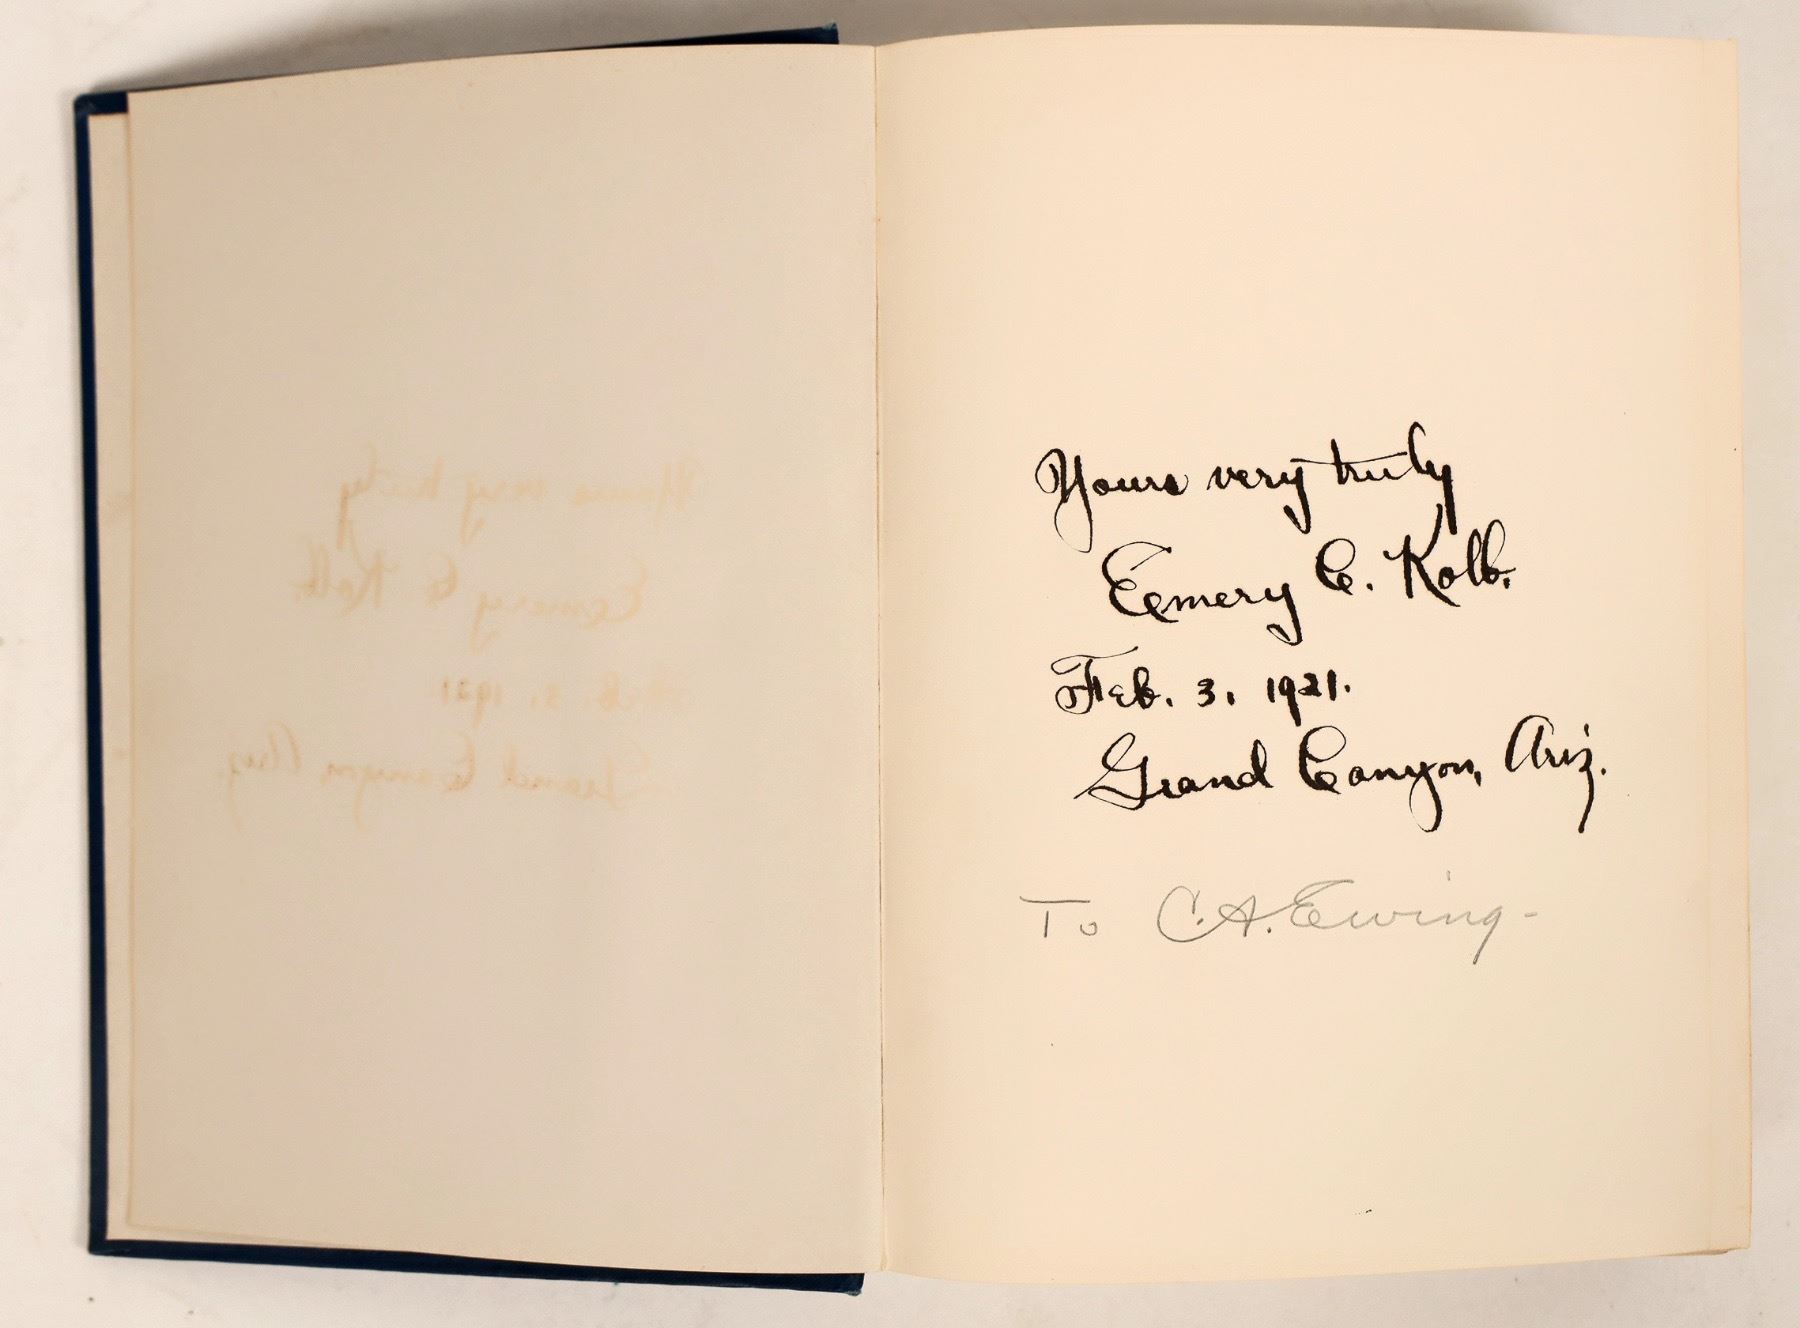 Yours very truly
Emery C. Kolb.
Feb. 3. 1921.
Grand Canyon, Ariz.
To C. A. Ewing-